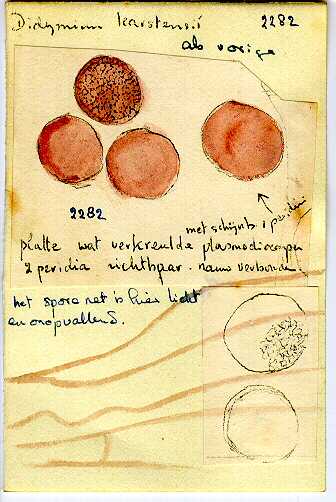 Didymium karstensii 2282
als vorige
2282
met schijnb. 1 peridie
platte wat verkreukelde plasmodiocarpen
2 peridia zichtbaar. nauw verbonden.
het spore net is hier licht
en onopvallend.